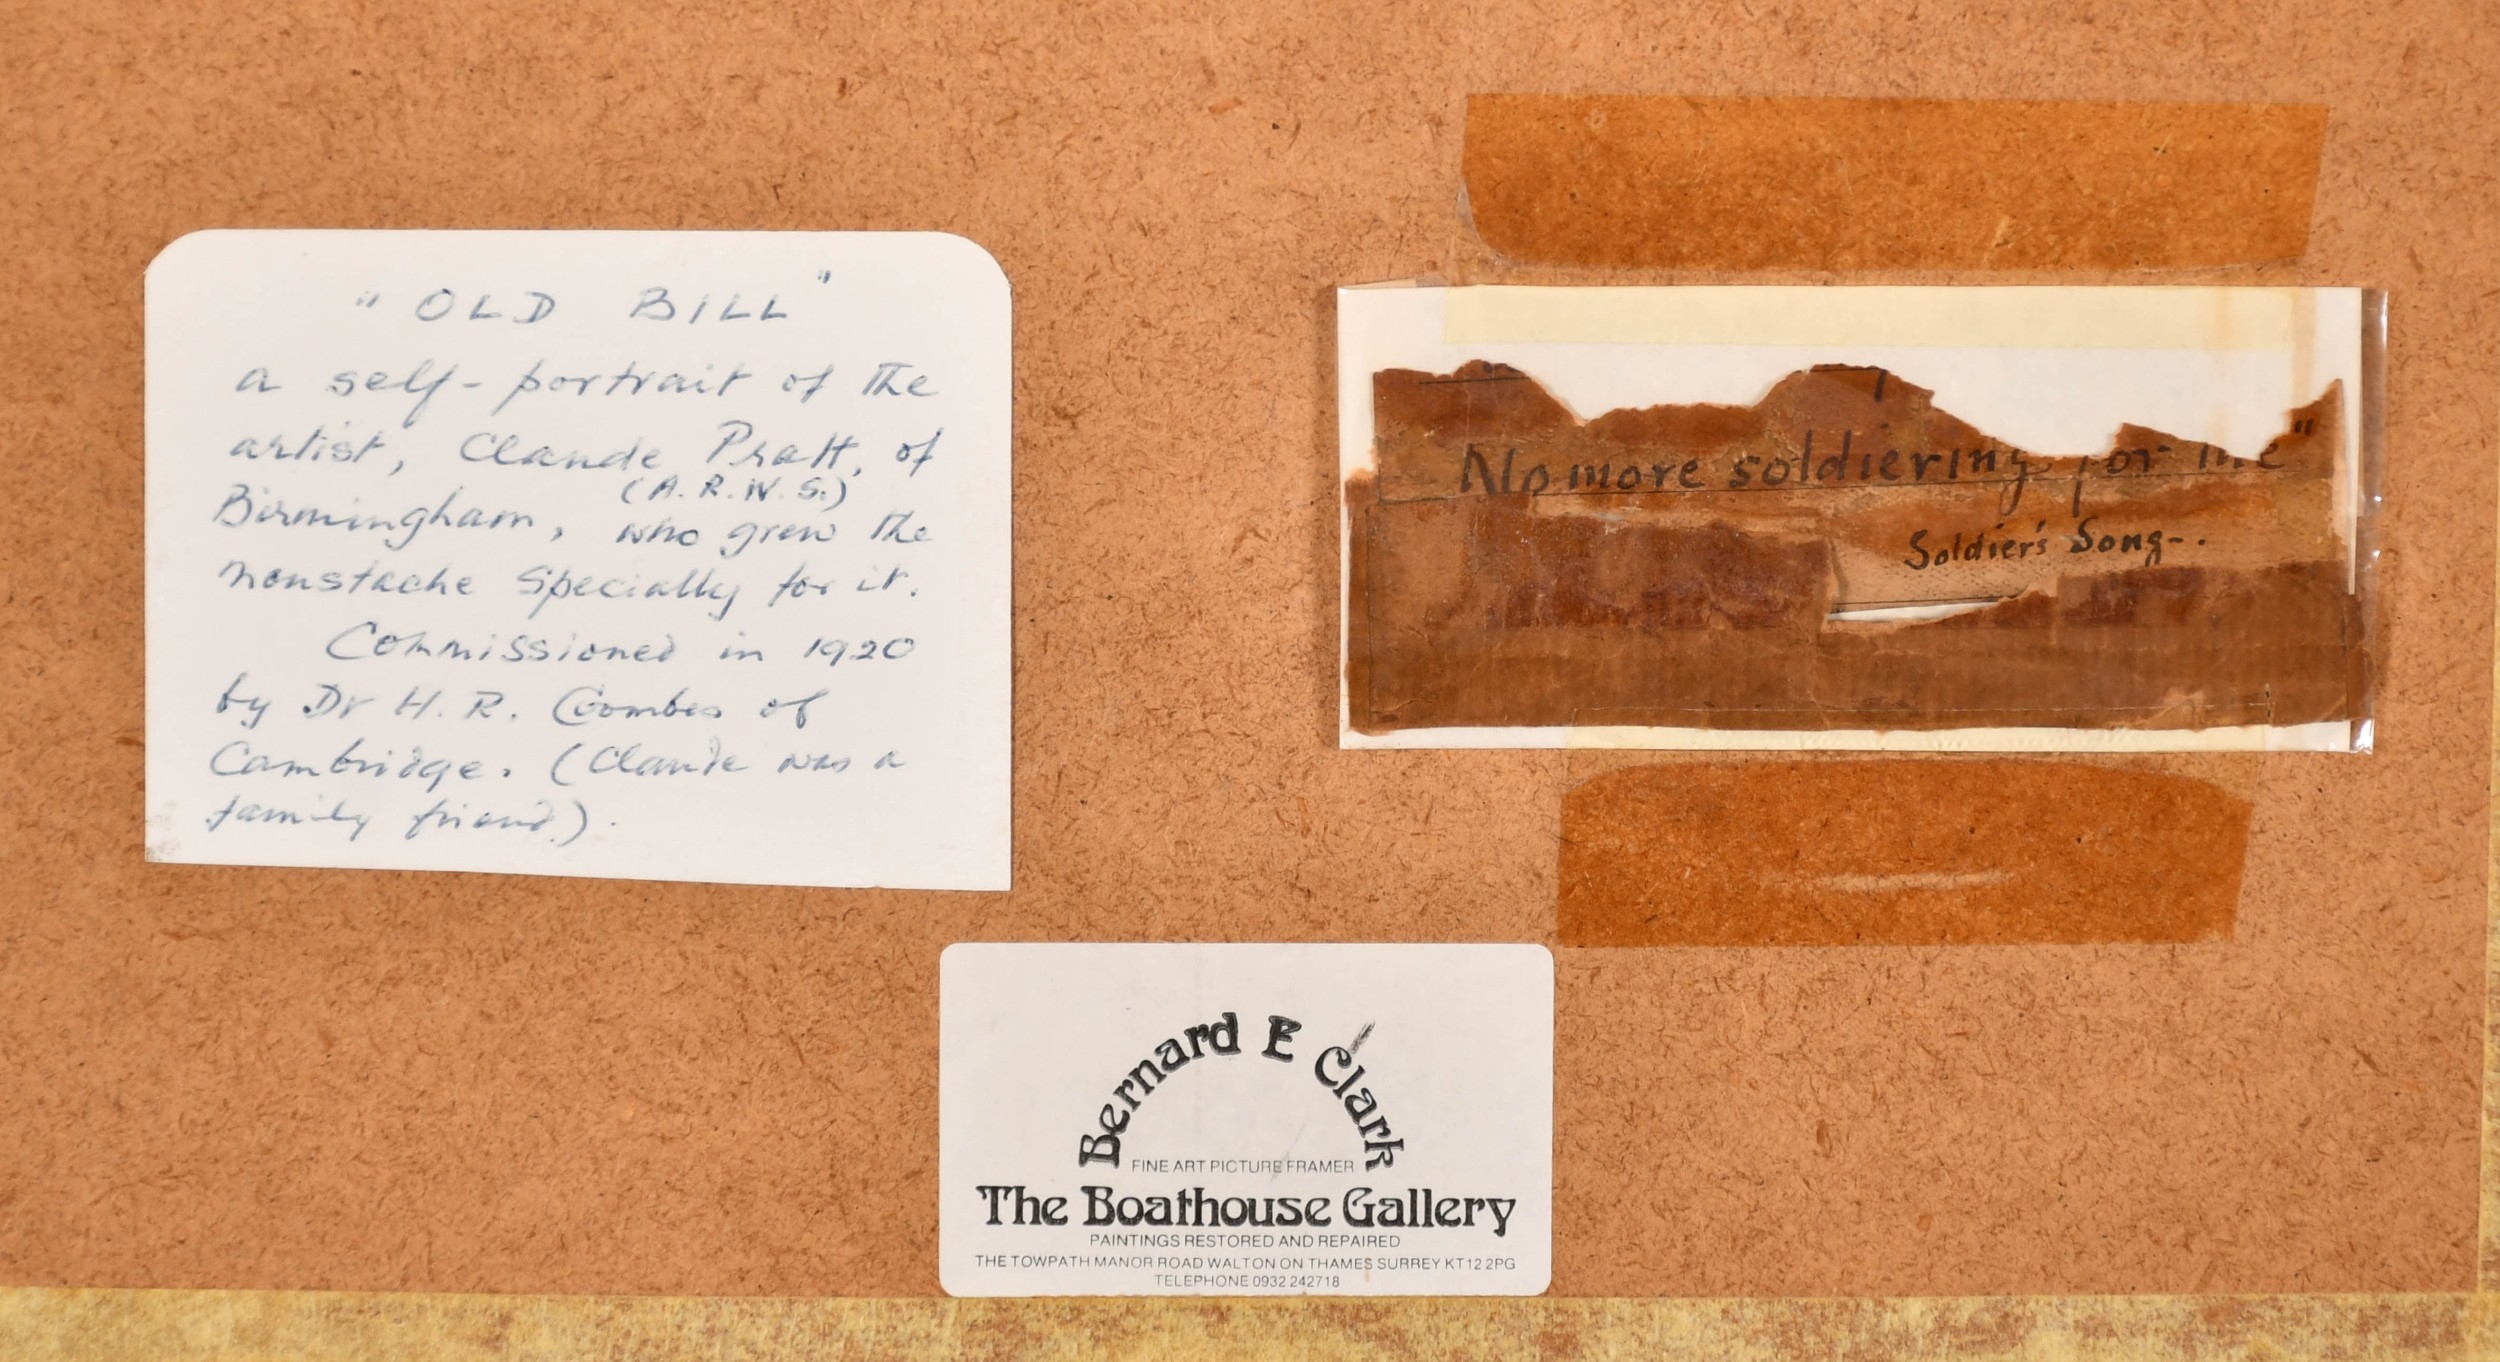 " OLD BILL "
a self-portrait of the
artist, Claude Pratt, of
(A.R.W.S.)
Birmingham, who grew the
moustache specially for it.
Commissioned in 1920
by Dr H. R. Coombes of
Cambridge. (Claude was a
family friend.).
No more soldiering for me"
Soldier's Song-.
Bernard E Clark
FINE ART PICTURE FRAMER
The Boathouse Gallery
PAINTINGS RESTORED AND REPAIRED
THE TOWPATH MANOR ROAD WALTON ON THAMES SURREY KT12 2PG
TELEPHONE 0932 242718